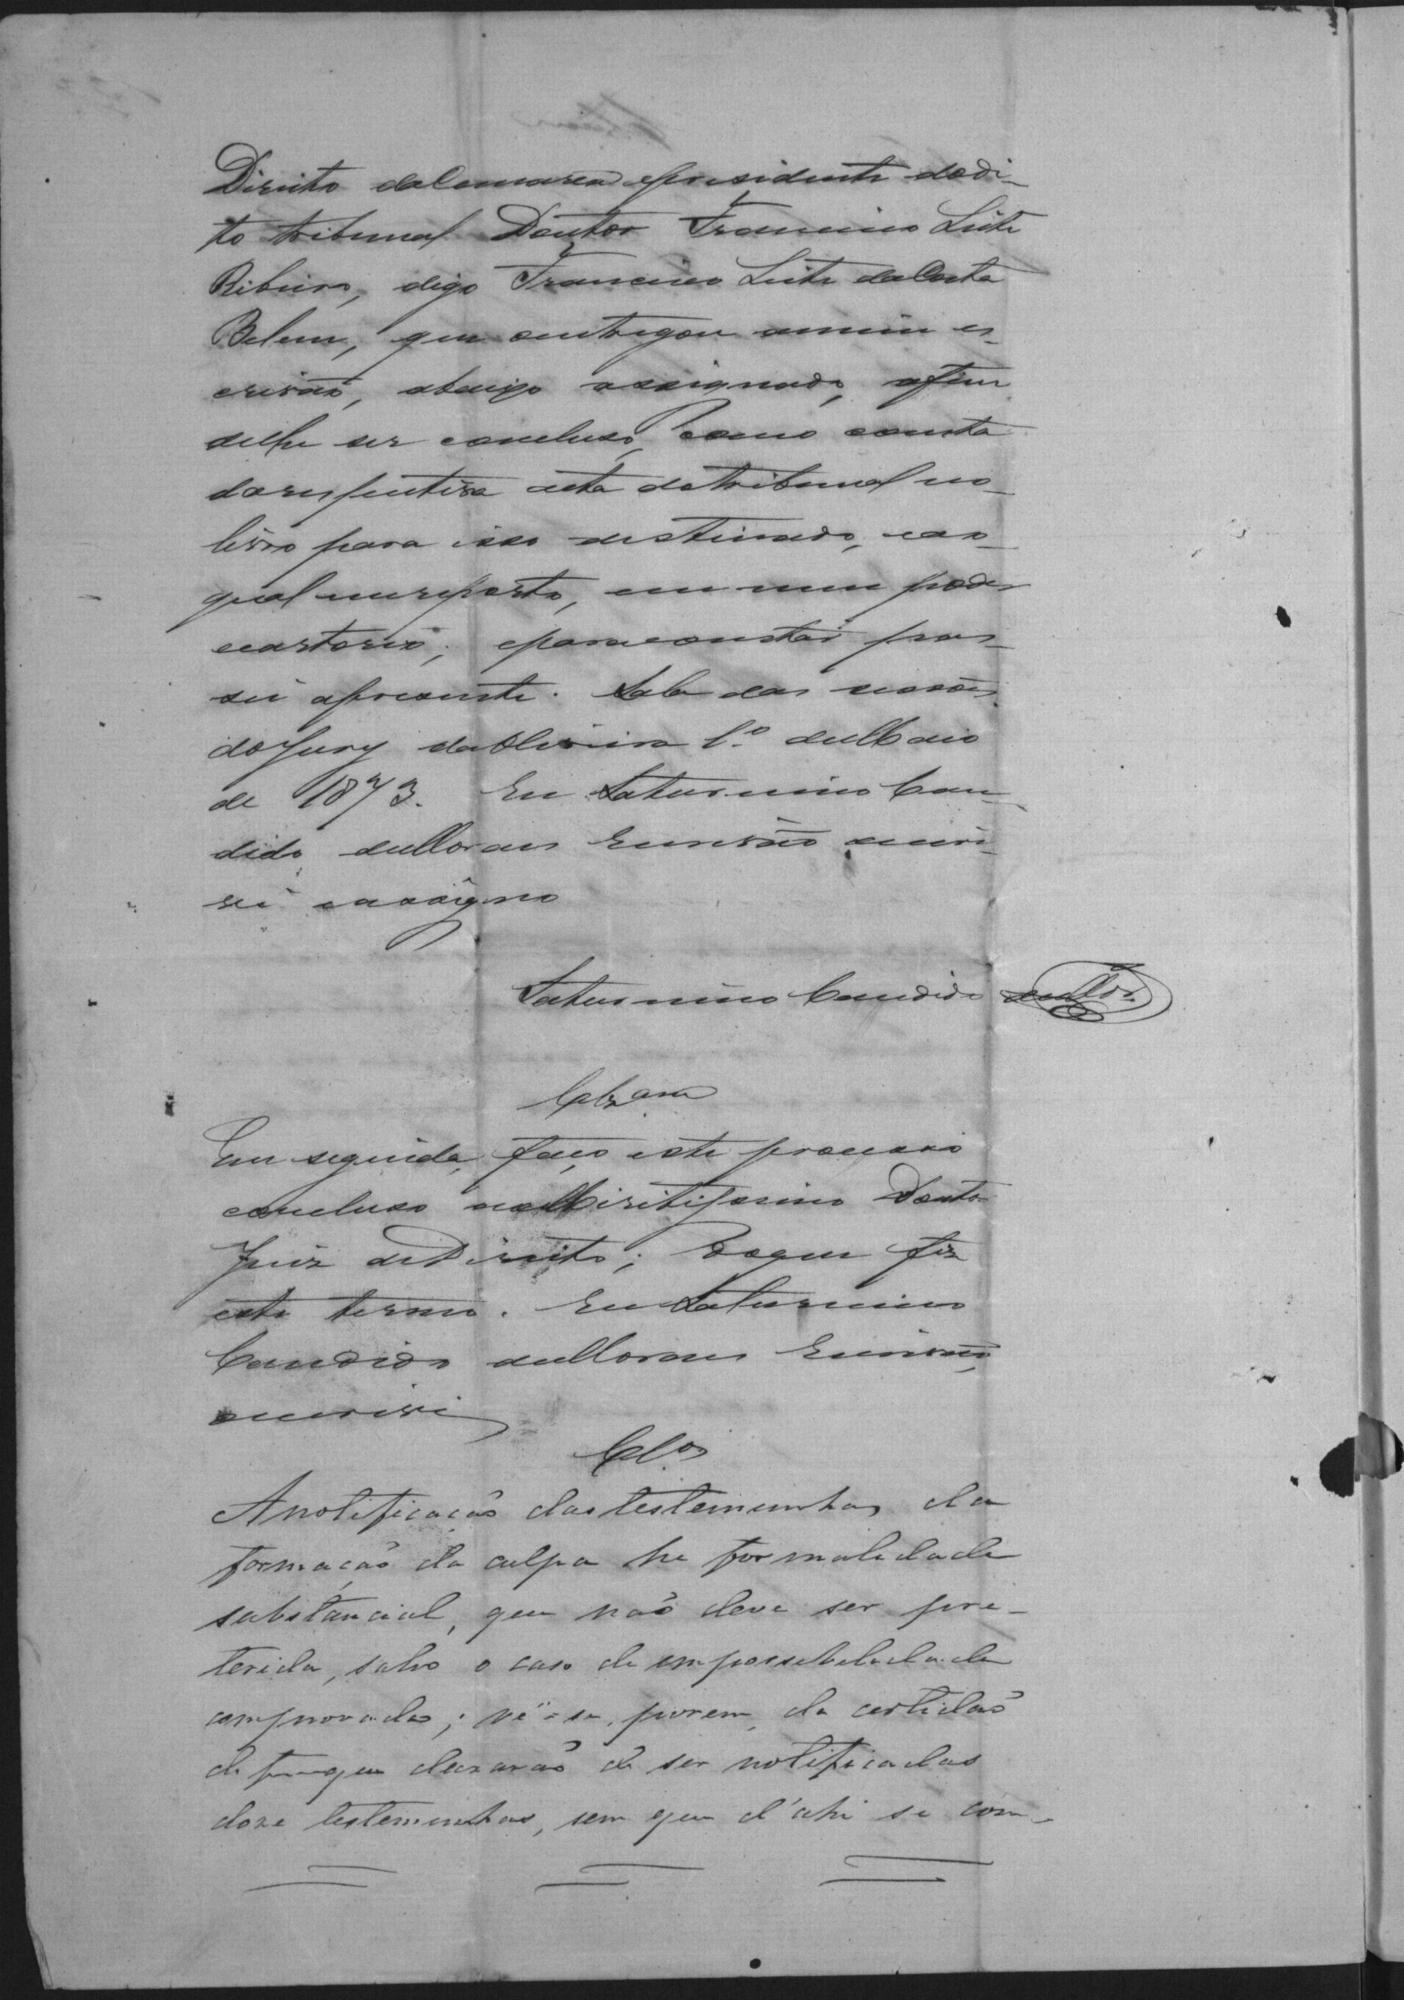 Direito da Comarca e presidente do di-
to tribunal Doutor Francisco Leite
Ribeiro, digo Francisco Leite da Costa
Belem, que entregou a mim es-
crivão, abaixo assignado, afim
de lhe ser concluso, como consta
da respectiva acta do tribunal no
livro para isso destinado, ao
qual me reporto, em meu poder
e cartorio; e para constar pas-
sei a presente. Sala das sessões
do Jury da Oliveira 1.º de Maio
de 1873. Eu Saturnino Can-
dido de Moraes Escrivão escri-
vi e assigno
Saturnino Candido de Mor.
Clzam
Em seguida, faço este processo
concluso ao Miritissimo Doutor
Juiz de Direito; do que fiz
este termo. Eu Saturnino
Candido de Moraes Escrivão,
escrivi
Clos
A notificação das testemunhas da
formação da culpa he formalidade
substancial, que não deve ser pre-
terida, salvo o caso de impossebelidade
comprovada; vê-se, porem, da certidão
de f que deixarão de ser notificadas
doze testemunhas, sem que d'ahi se com-